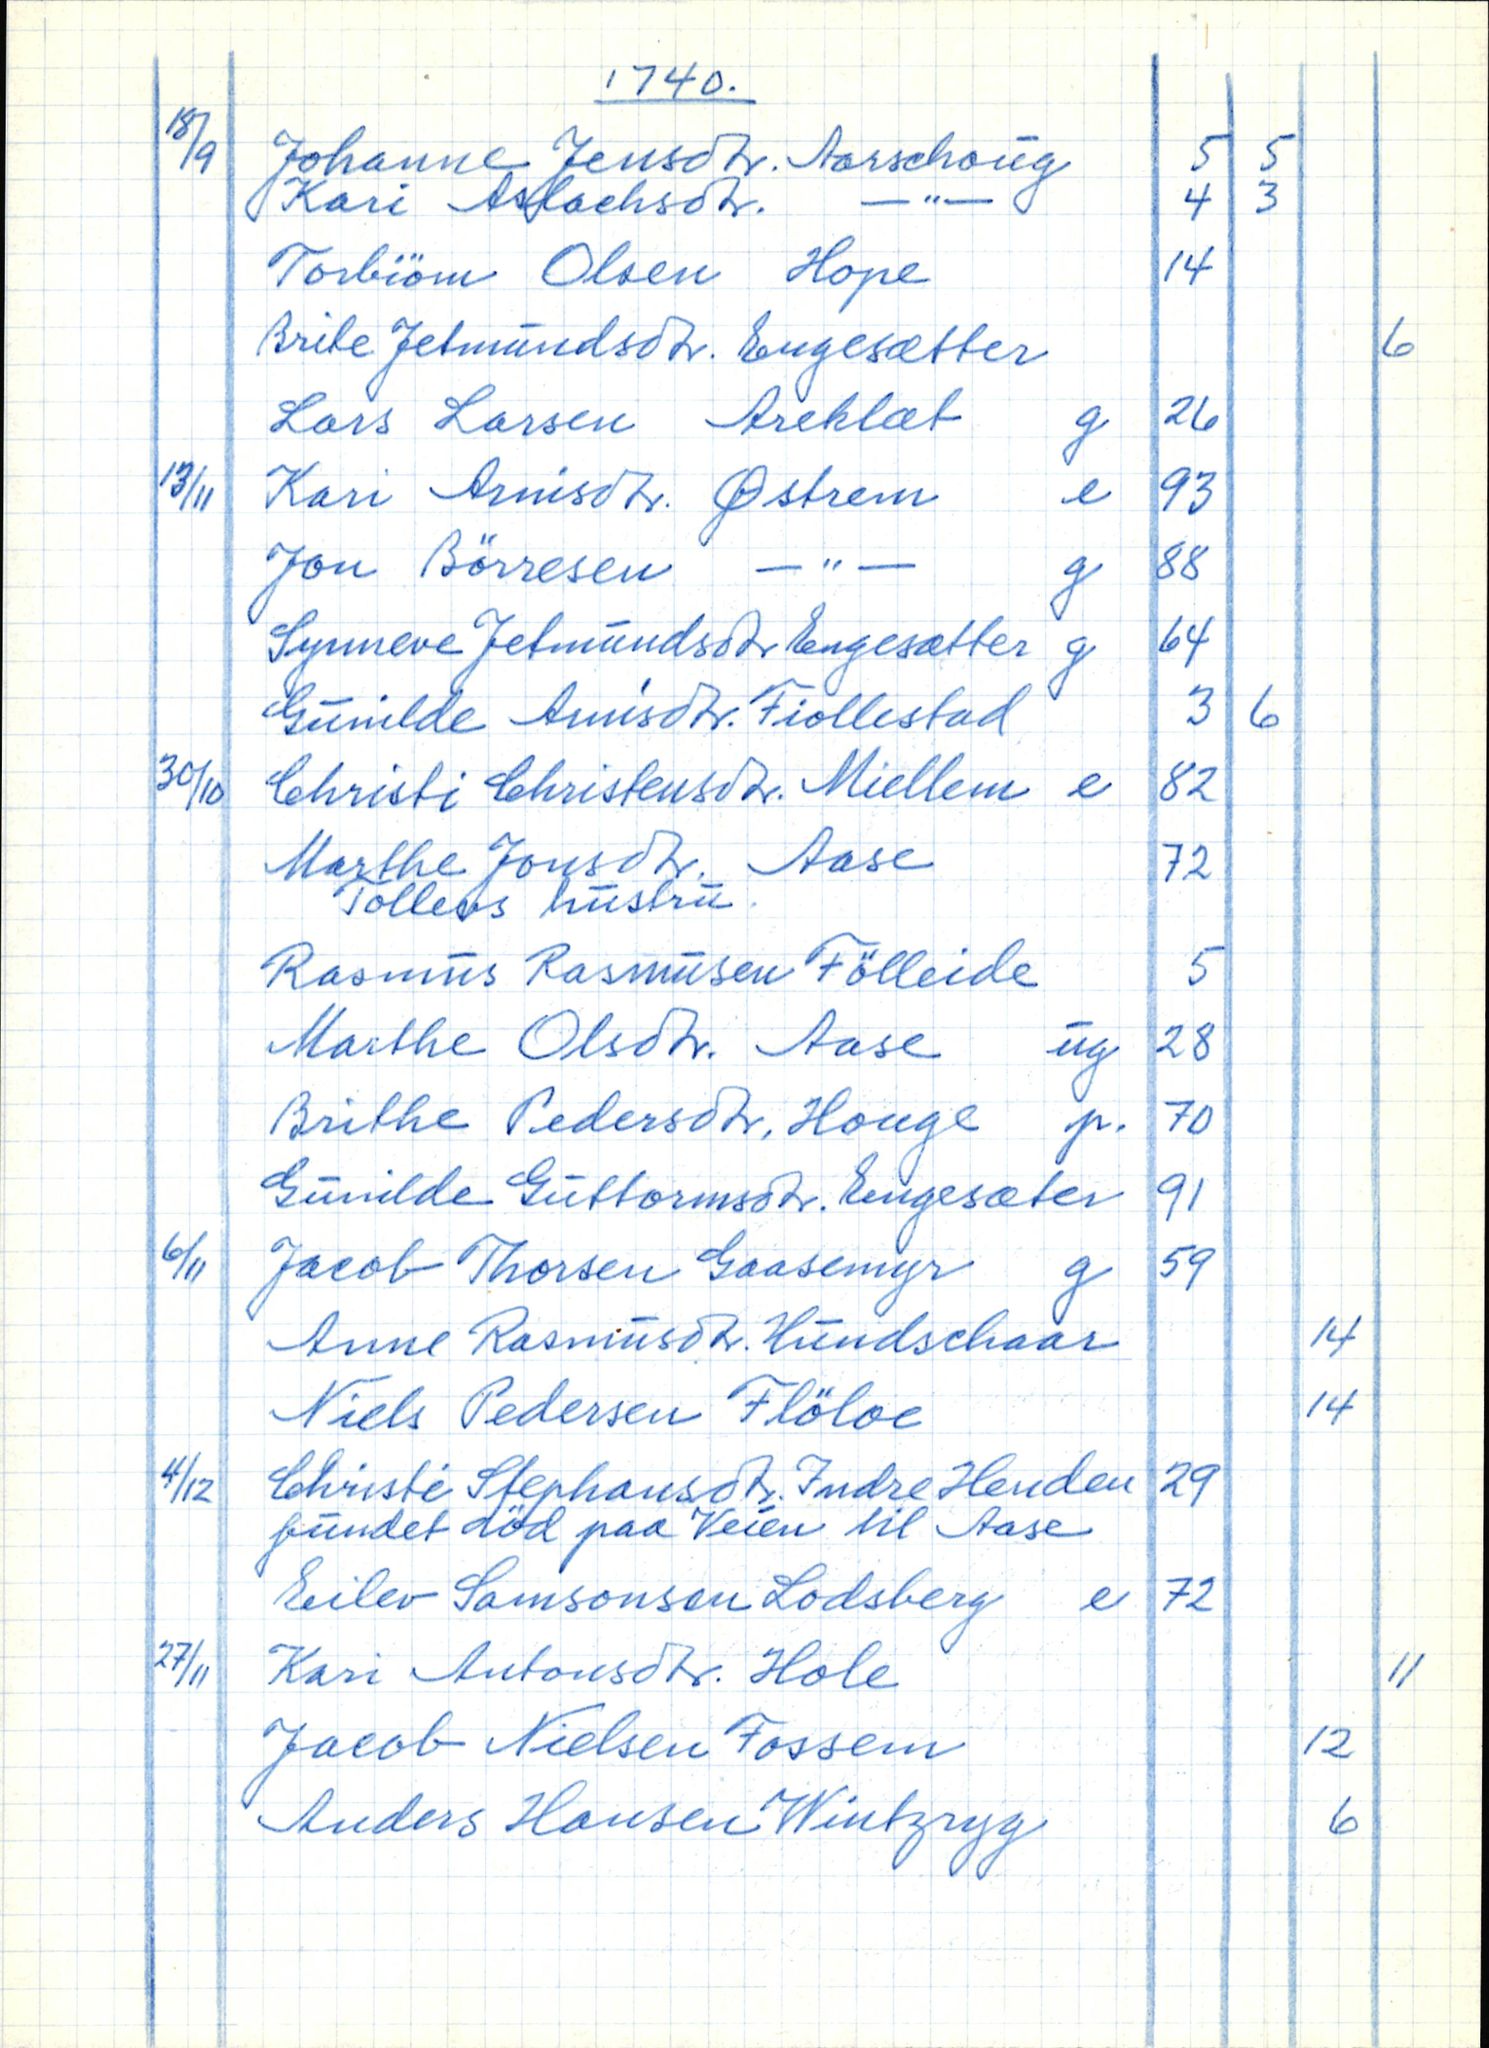 1740.
18/9 Johanne Jensdtr. Aarschoug 5 5
Kari Aslachsdtr. —"— 4 3
Torbiörn Olsen Hope 14
Brite Jetmundsdtr. Engesætter 6
Lars Larsen Areklæt g 26
13/11 Kari Arnisdtr. Østrem e 93
Jon Börresen —"— g 88
Synneve Jetmundsdtr Engesætter g 64
Gunilde Arnisdtr. Fiollestad 3 6
30/10 Christi Christensdtr. Miellem e 82
Marthe Jonsdtr. Aase 72
Tollevs hustru.
Rasmus Rasmusen Fölleide 5
Marthe Olsdtr. Aase ug 28
Brithe Pedersdtr. Houge p. 70
Gunilde Guttormsdtr. Engesæter 91
6/11 Jacob Thorsen Gaasemyr g 59
Anne Rasmusdtr. Hundschaar 14
Niels Pedersen Flöloe 14
4/12 Christi Stephansdtr. Indre Henden 29
fundet död paa Veien til Aase
Eilev Samsonsen Lodsberg e 72
27/11 Kari Antonsdtr. Hole 11
Jacob Nielsen Fossem 12
Anders Hansen Wintzryg 6